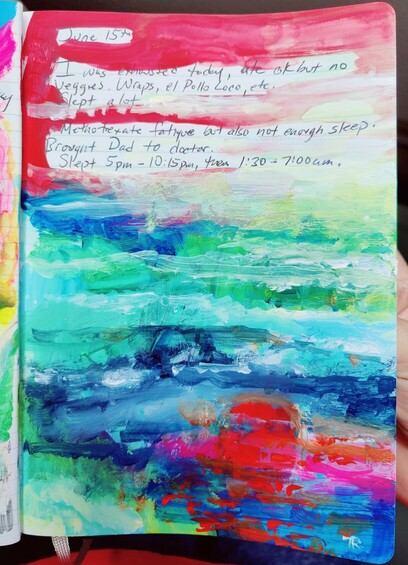 June 15th
I was exhausted today, ate ok but no
veggies. Wraps, el Pollo Loco, etc.
Slept a lot.
Methotrexate fatigue but also not enough sleep.
Brought Dad to doctor.
Slept 5pm - 10:15pm, then 1:30 - 7:00am.